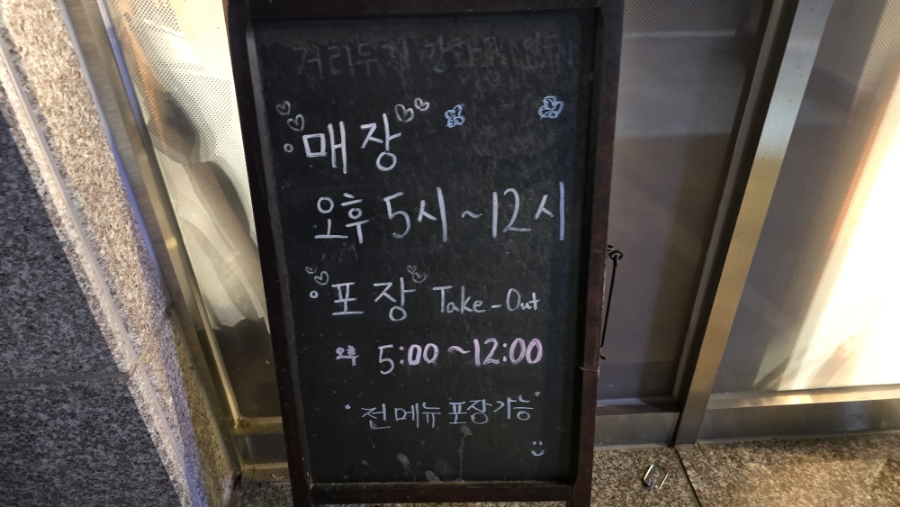 매장
오후 5시~12시
포장 Take-Out
오후 5:00~12:00
전메뉴 포장가능